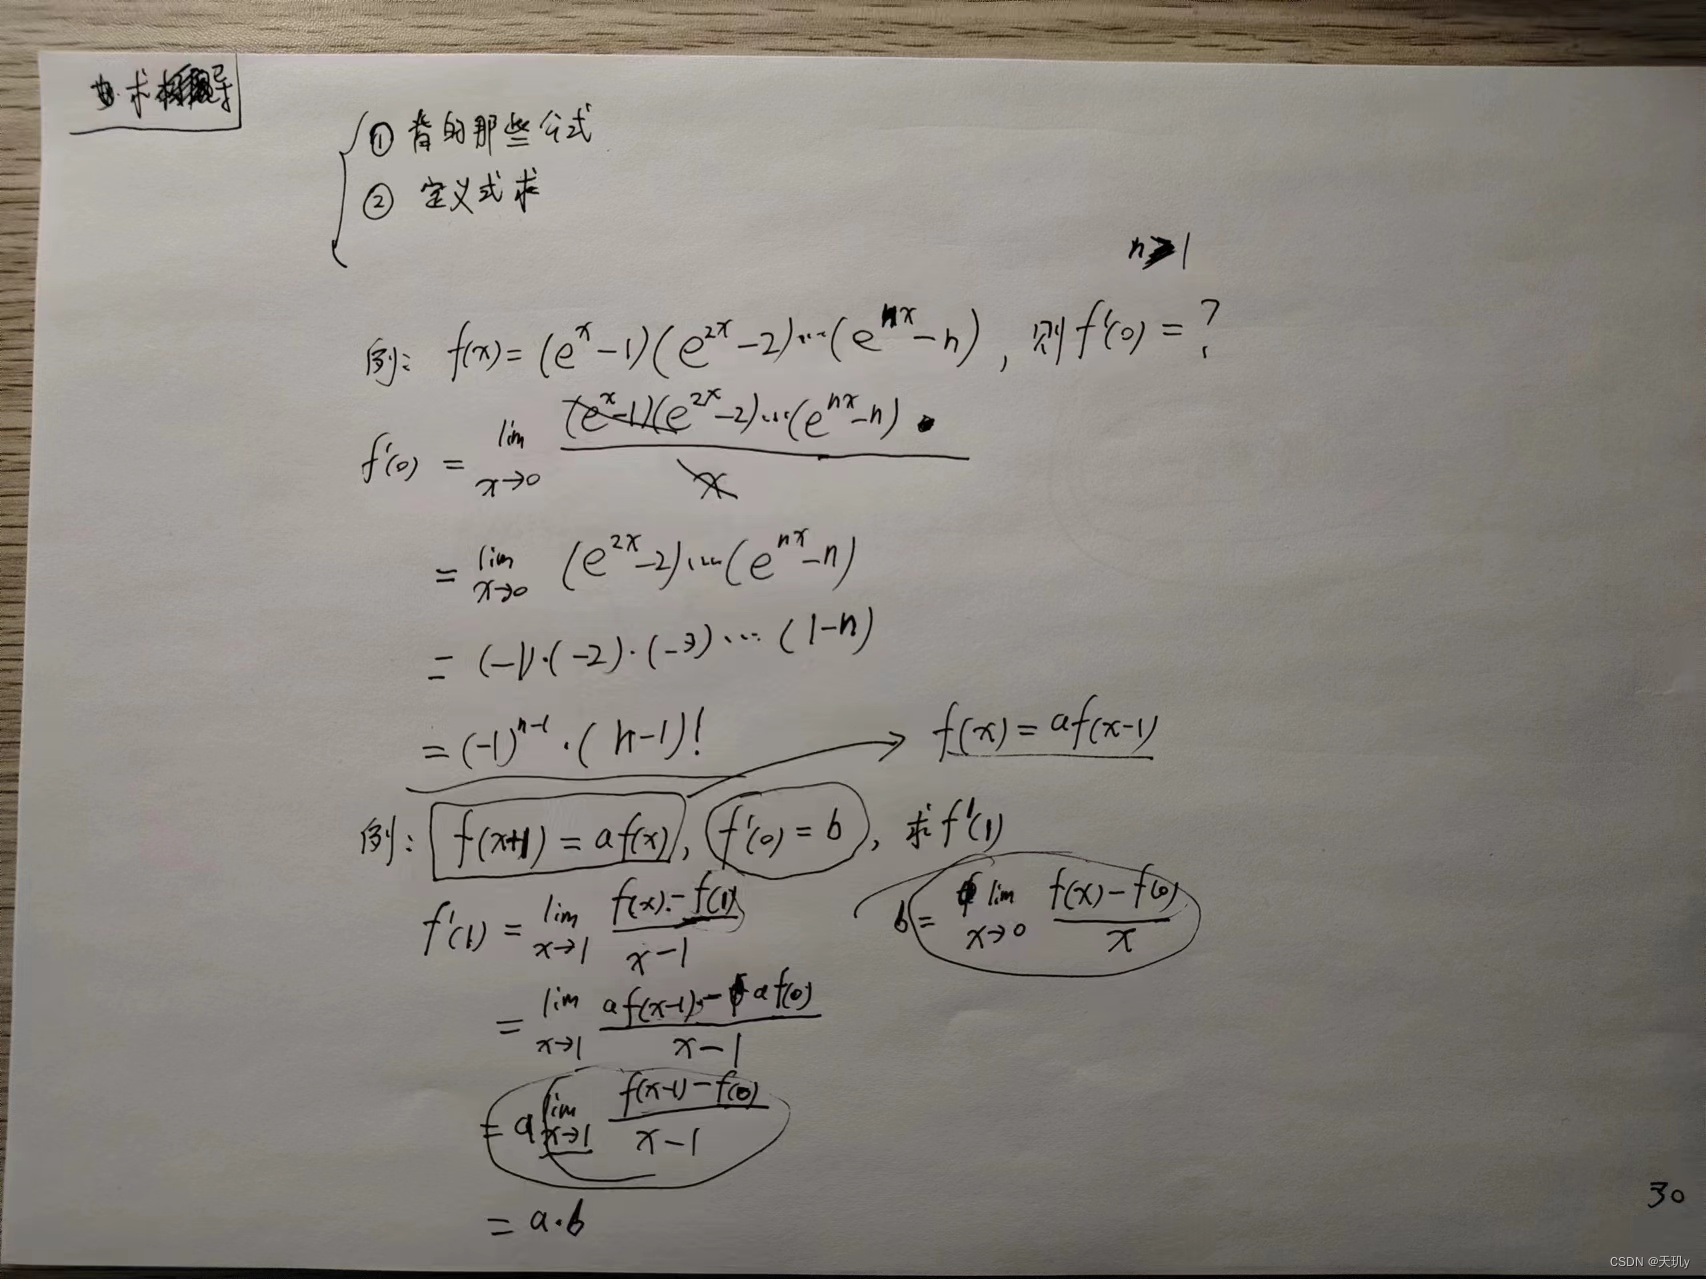 求导
① 背的那些公式
② 定义式求
n≥1
例: f(x) = (e^x - 1)(e^{2x} - 2)···(e^{nx} - n), 则 f'(0) = ?
f'(0) = lim_{x→0} \frac{(e^x-1)(e^{2x}-2)···(e^{nx}-n)}{x}
= lim_{x→0} (e^{2x}-2)···(e^{nx}-n)
= (-1)·(-2)·(-3)···(1-n)
= (-1)^{n-1}·(n-1)!
f(x) = af(x-1)
例: f(x+1) = af(x), f'(0) = b, 求f'(1)
f'(1) = lim_{x→1} \frac{f(x)-f(1)}{x-1}
b = lim_{x→0} \frac{f(x)-f(0)}{x}
= lim_{x→1} \frac{af(x-1)-af(0)}{x-1}
= a lim_{x→1} \frac{f(x-1)-f(0)}{x-1}
= a·b
30
CSDN @天玑y